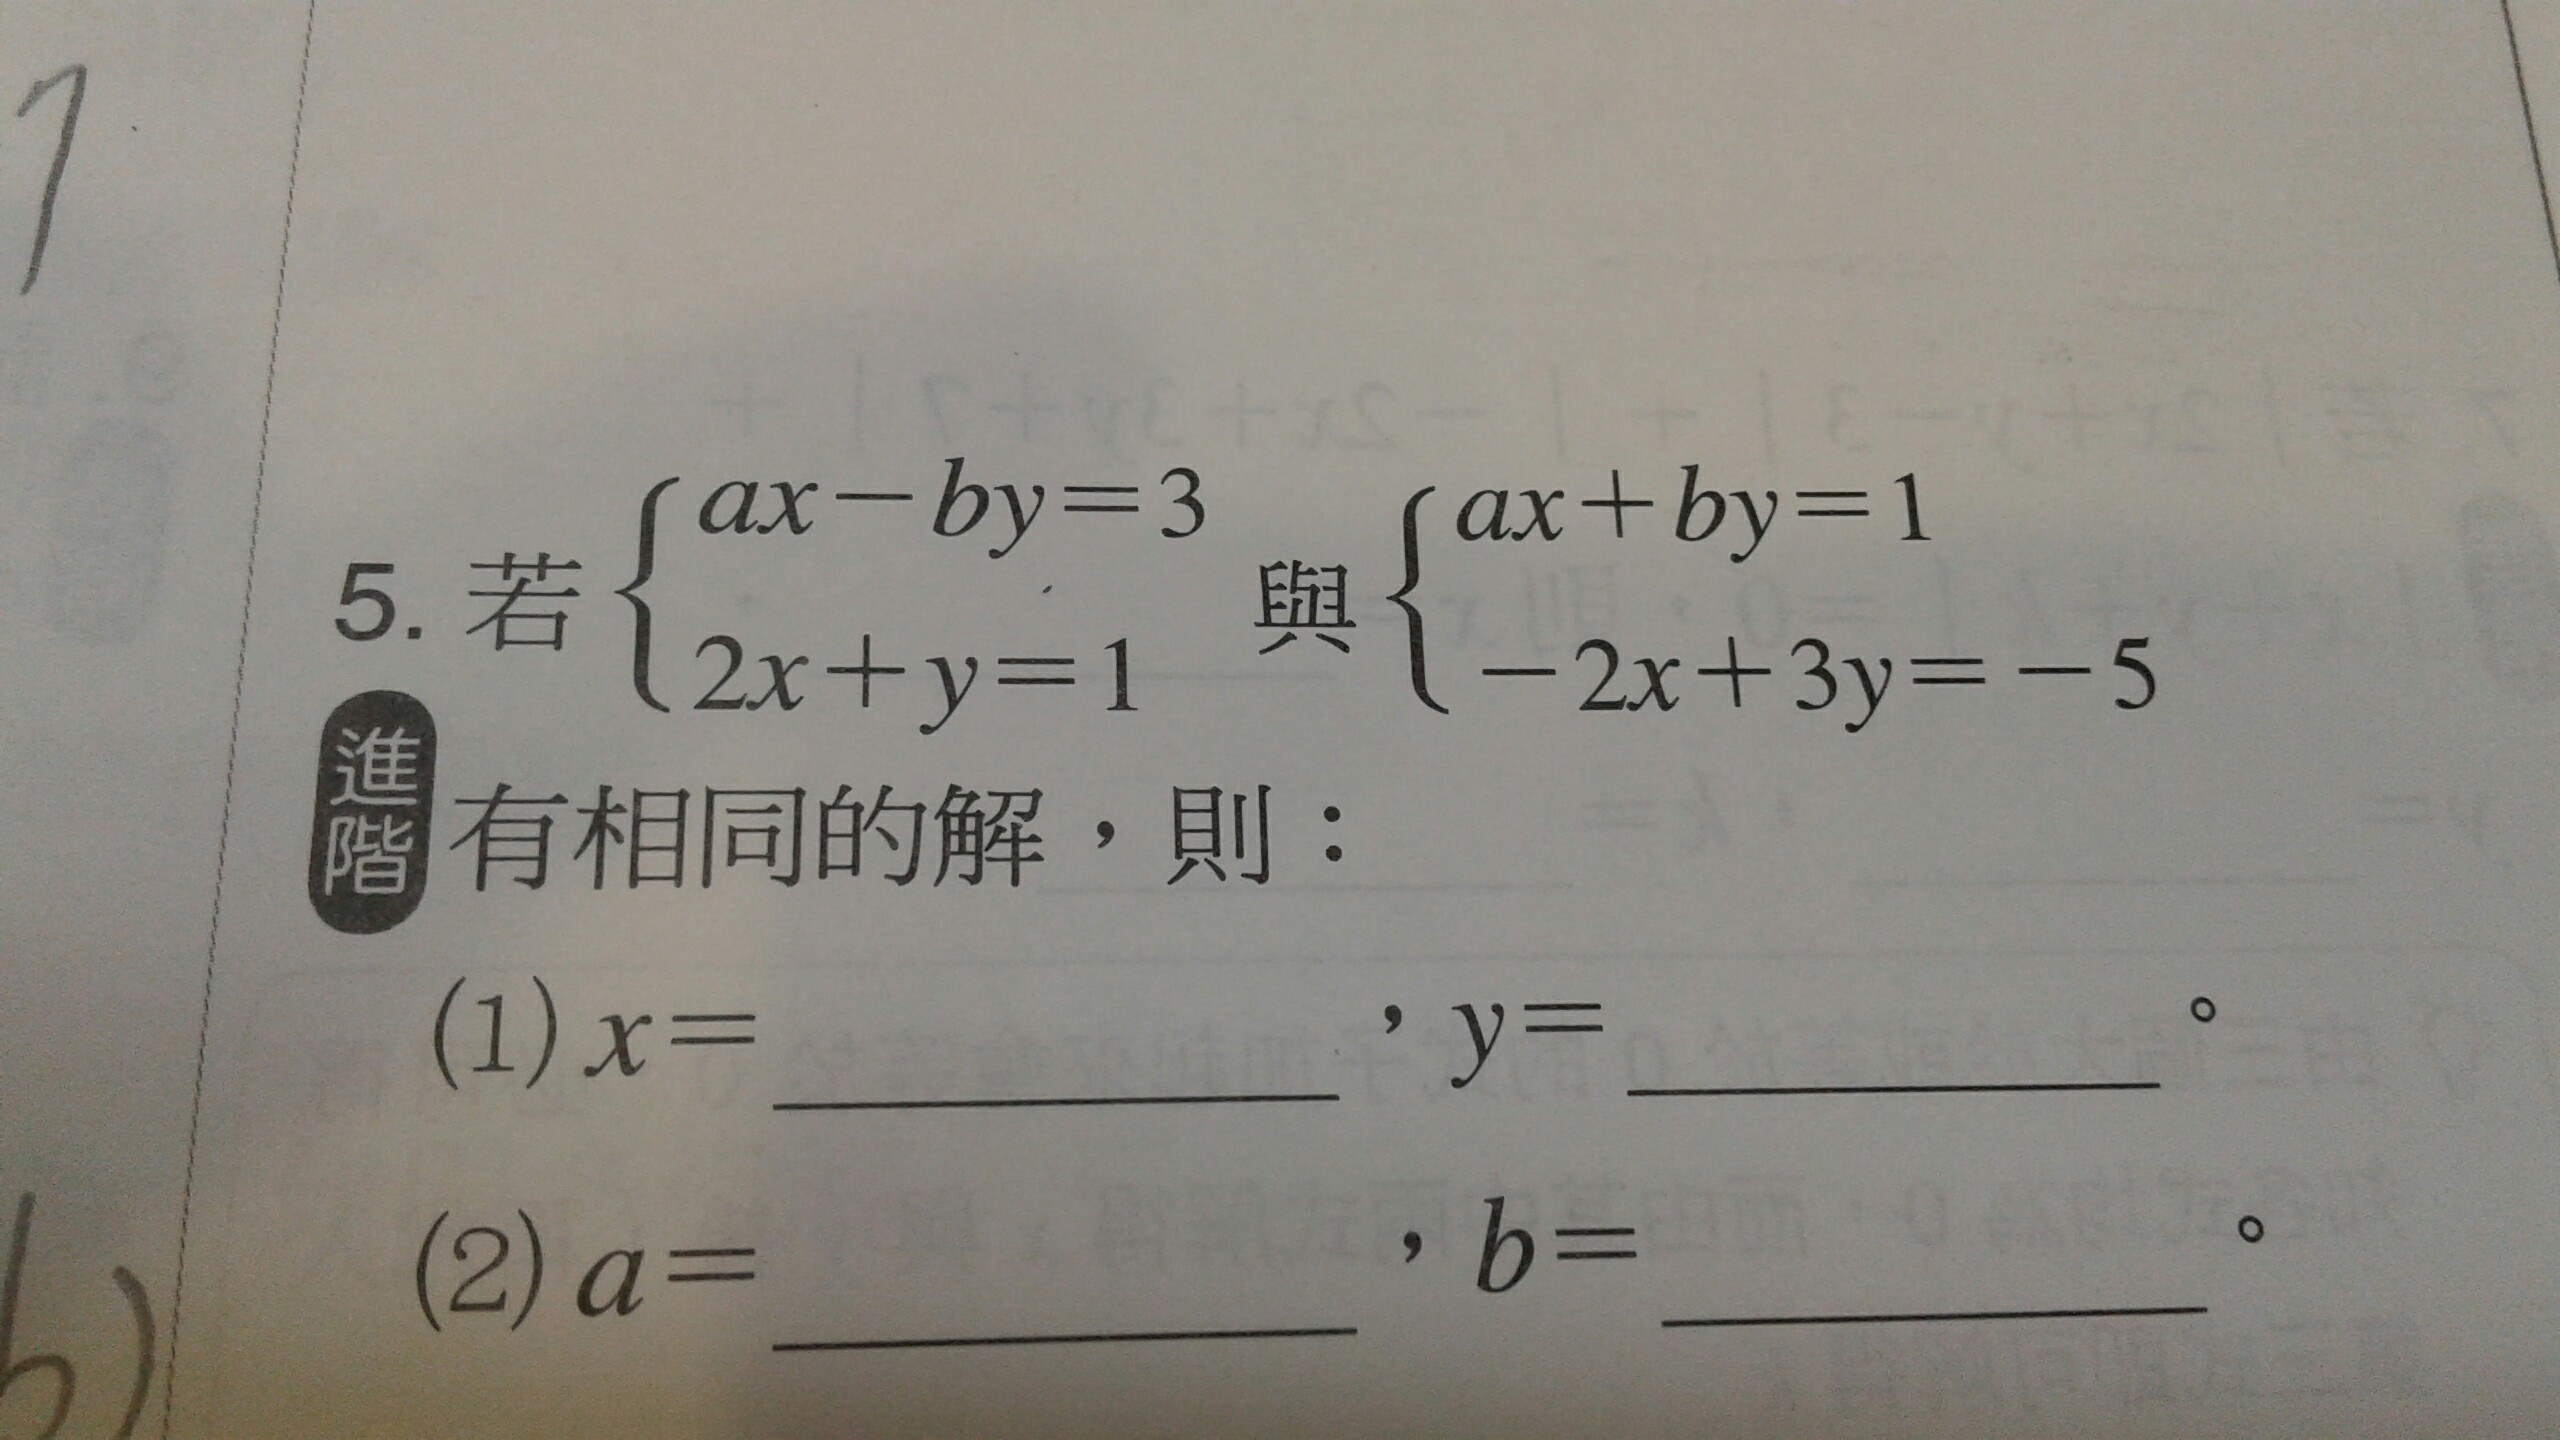 7
5. 若 { ax－by＝3 與 { ax＋by＝1
2x＋y＝1 －2x＋3y＝－5
進階 有相同的解，則：
(1) x＝________，y＝________。
(2) a＝________，b＝________。
b)